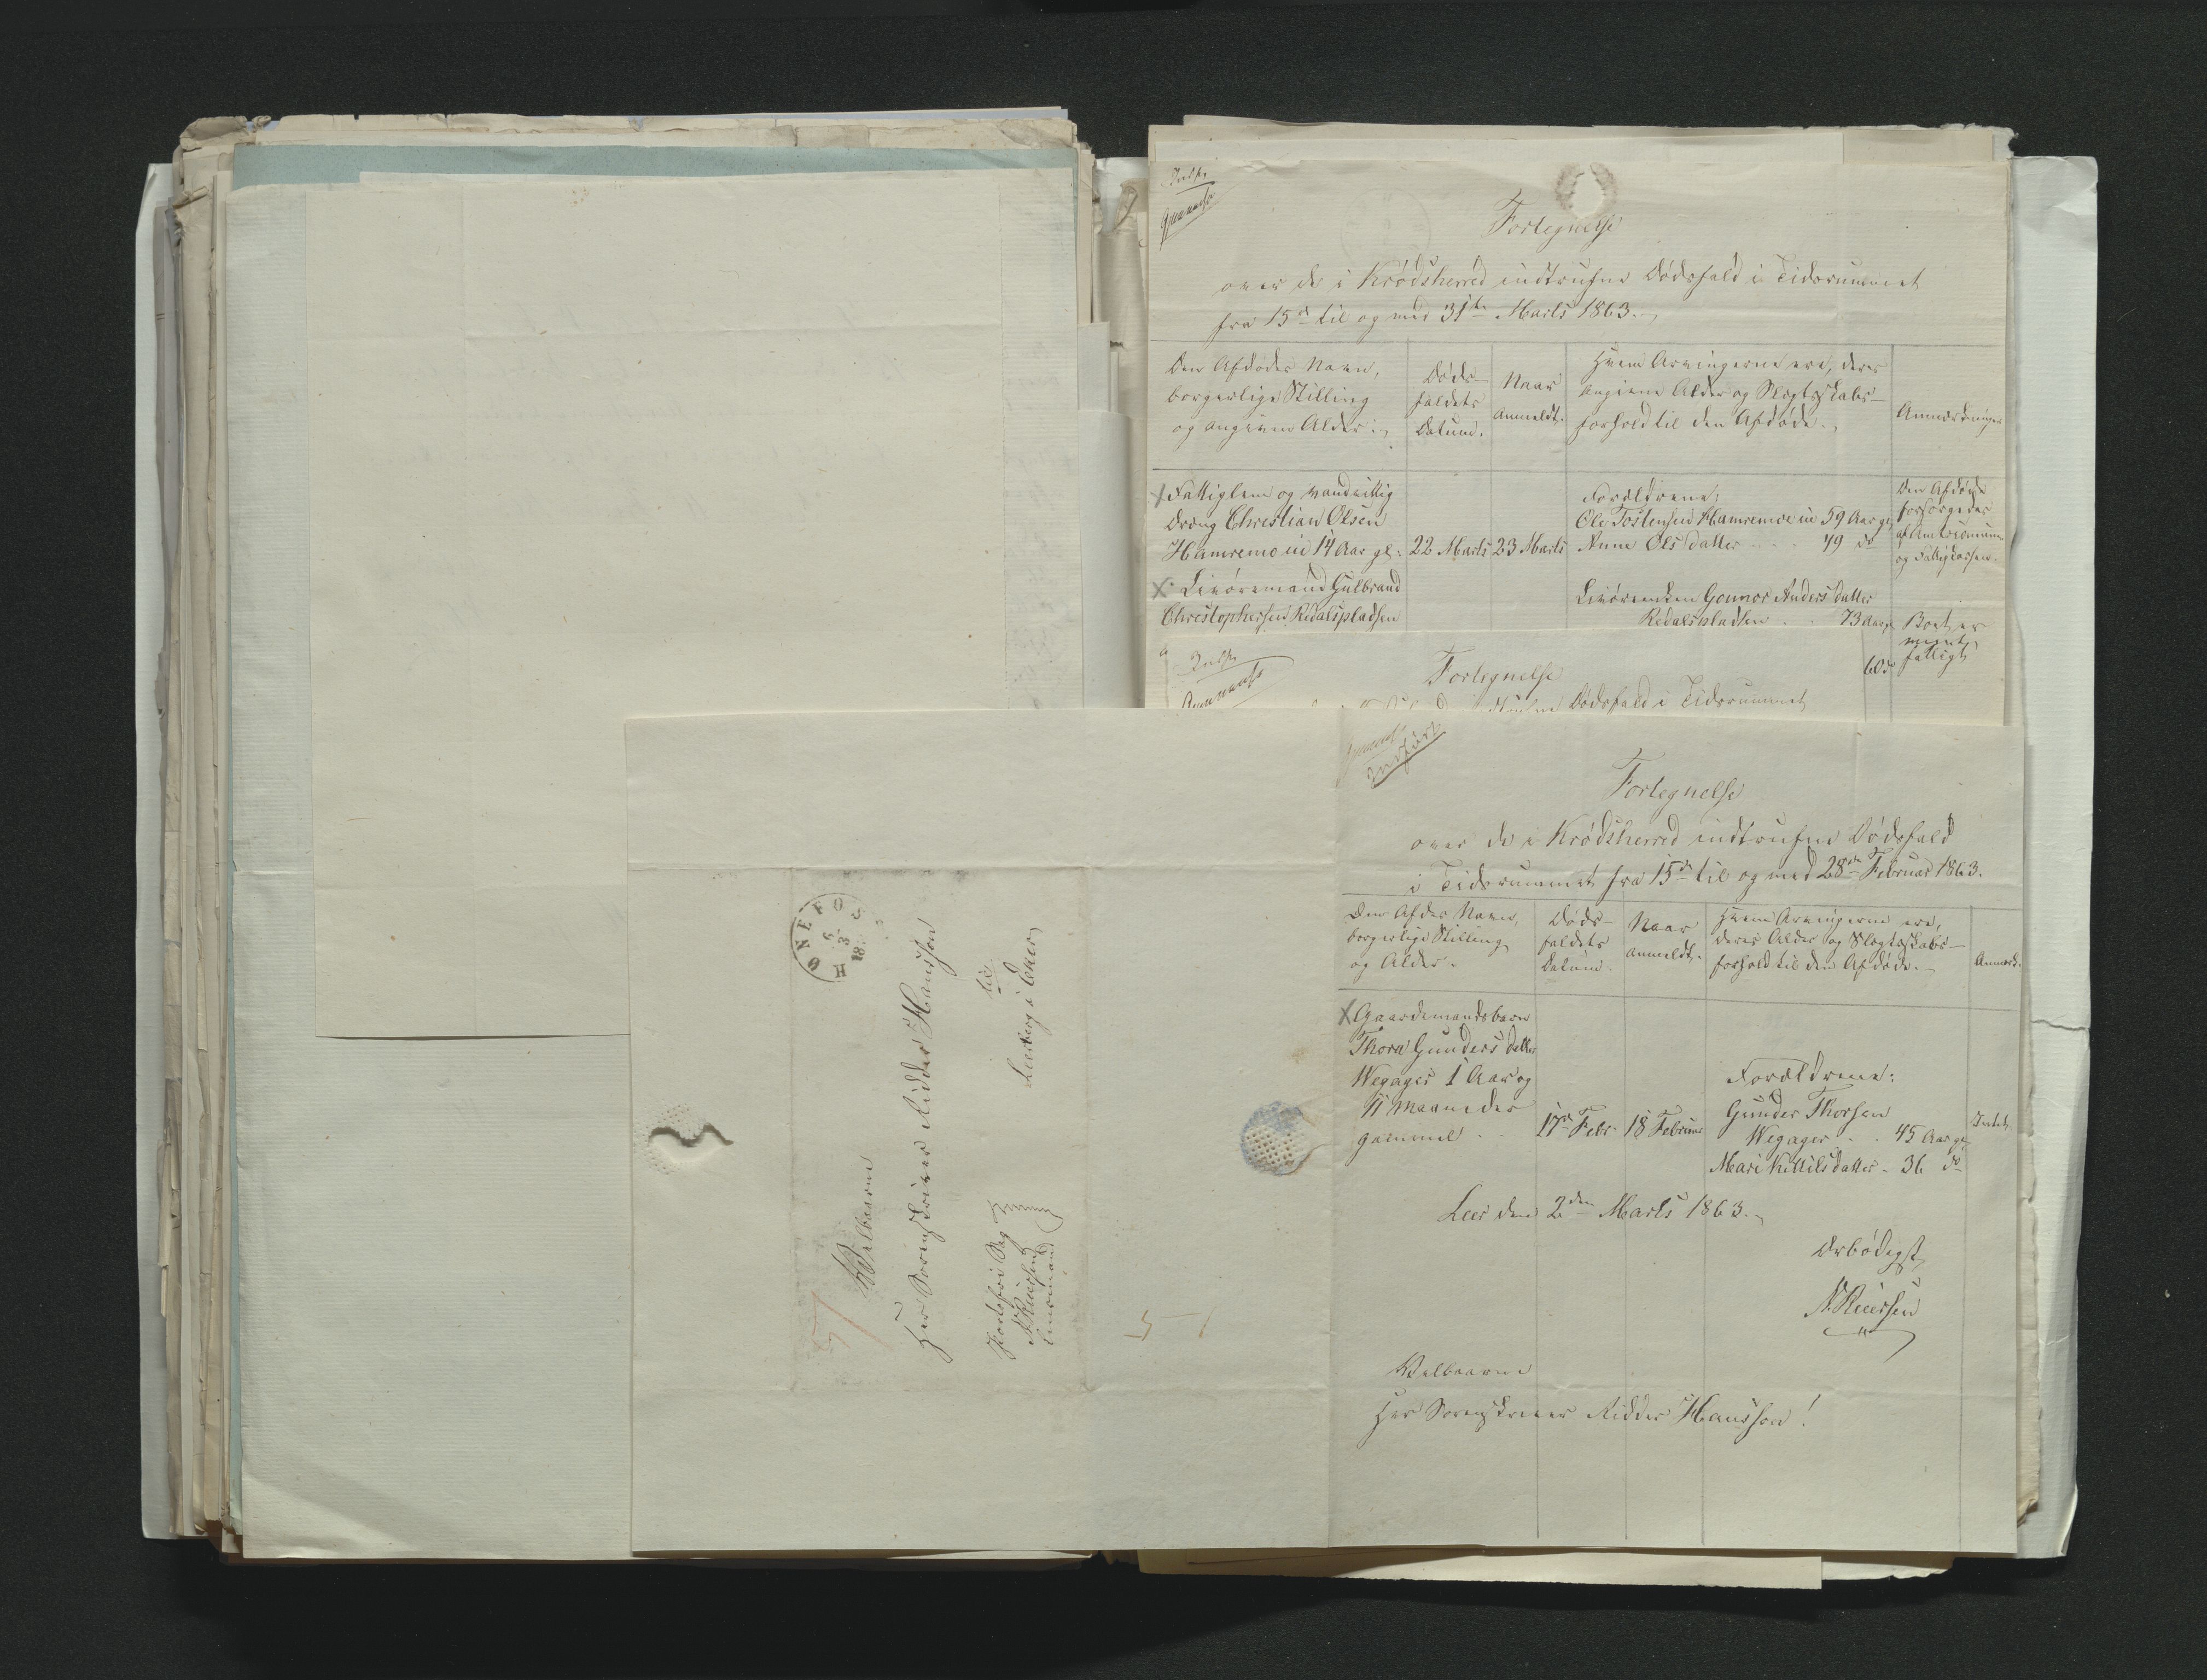 Indf.
Gjennemf.
Fortegnelse
over de i Krødsherred indtrufne Dødsfald i Tidsrummet
fra 15de til og med 31te Marts 1863.
Den Afdødes Navn,
borgerlige Stilling
og angivne Alder.
Døds-
faldets
Datum.
Naar
anmeldt.
Hvem Arvingerne ere, deres
angivne Alder og Slægtskabs-
forhold til den Afdøde.
Anmærkninger
Fattiglem og vandvittig
Dreng Christian Olsen
Hamremoeie 14 Aar gl.
22 Marts
23 Marts
Forældrene:
Ole Tostensen Hamremoeie 59 Aar gl.
Anne Olsdatter . . . 49 do
Den Afdøde
forsørgedes
af Amtscommune
og Fattigkassen.
Livøremand Gulbrand
Christophersen Redalspladsen
Livørenken Gonnor Andersdatter
Redalspladsen . . 73 Aar gl.
60 do
Boet er
meget
fattigt
Indf.
Gjennemf.
Fortegnelse
Dødsfald i Tidsrummet
Gjennemf.
Indført
Fortegnelse
over de i Krødsherred indtrufne Dødsfald
i Tidsrummet fra 15de til og med 28de Februar 1863.
Den Afdes Navn,
borgerlige Stilling
og Alder.
Døds-
faldets
Datum.
Naar
anmeldt.
Hvem Arvingerne ere,
deres Alder og Slægtskabs-
forhold til den Afdøde.
Anmærk.
Gaardemandsbarn
Thora Gundersdatter
Wegager 1 Aar og
11 Maaneder
gammel . .
17de Febr.
18 Februar
Forældrene:
Gunder Thorsen
Wegager . . 45 Aar gl.
Mari Kittilsdatter . 36 do
Intet
Leer den 2den Marts 1863.
Ærbødigst
N. Kuersen
Velbaarne
Herr Sorenskriver Ridder Hansson!
HØNEFOS
6
3
18
Velbaarne
Herr Sorenskriver Ridder Hansson
til
Leerberg i Eker
Portofri Sag
Lensmand